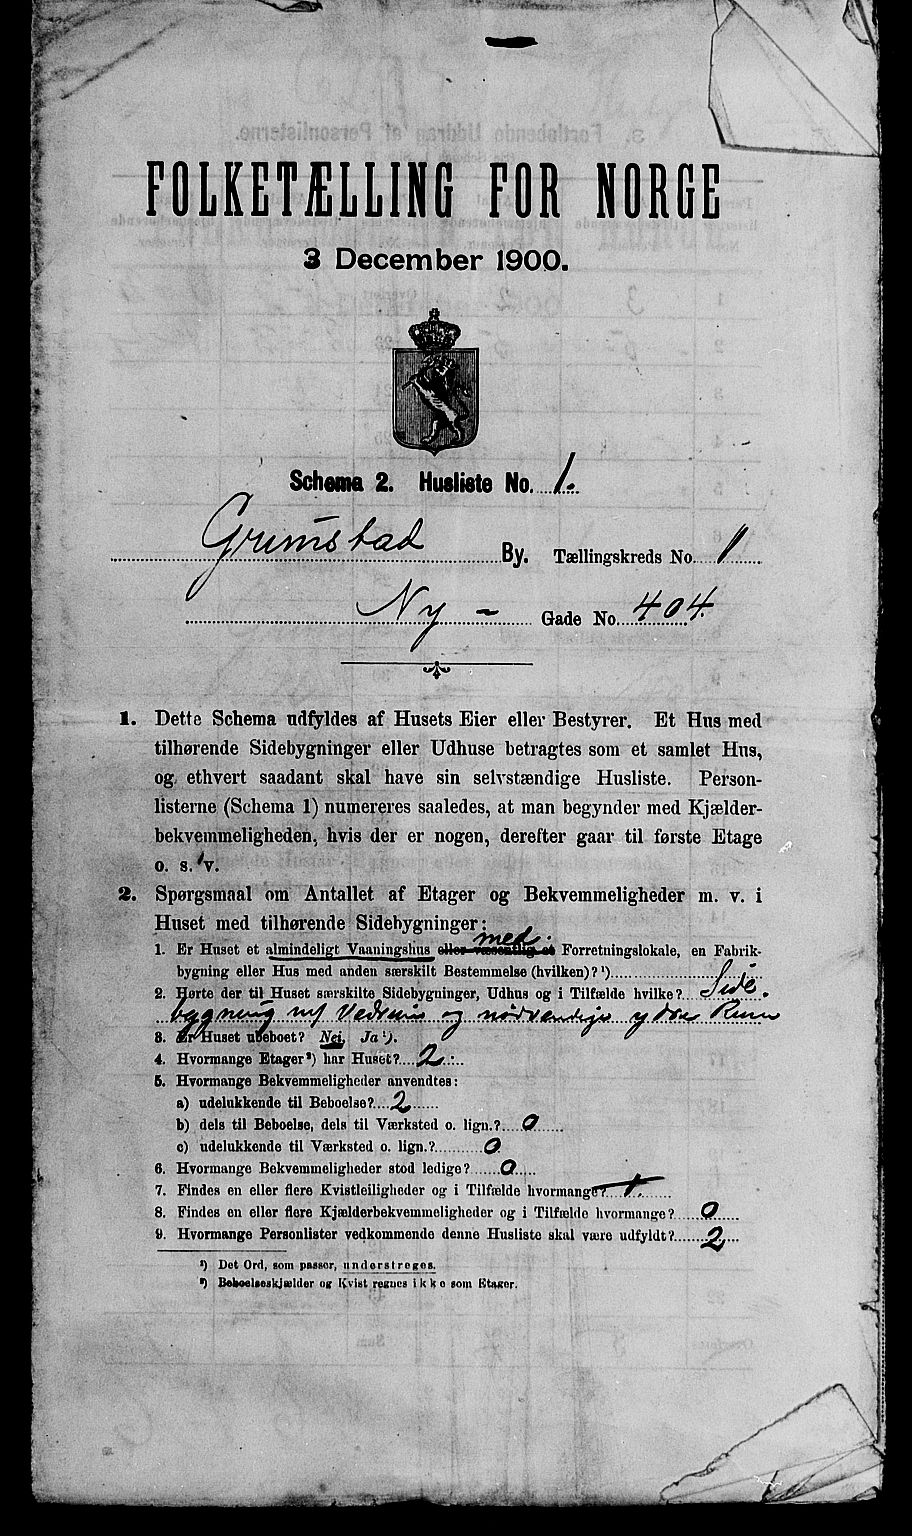 FOLKETÆLLING FOR NORGE
3 December 1900.
Schema 2. Husliste No. 1.
Grimstad By. Tællingskreds No. 1
Ny - Gade No. 404.
1. Dette Schema udfyldes af Husets Eier eller Bestyrer. Et Hus med
tilhørende Sidebygninger eller Udhuse betragtes som et samlet Hus,
og ethvert saadant skal have sin selvstændige Husliste. Person-
listerne (Schema 1) numereres saaledes, at man begynder med Kjælder-
bekvemmeligheden, hvis der er nogen, derefter gaar til første Etage
o. s. v.
2. Spørgsmaal om Antallet af Etager og Bekvemmeligheder m. v. i
Huset med tilhørende Sidebygninger:
med
1. Er Huset et almindeligt Vaaningshus eller væsentlig et Forretningslokale, en Fabrik-
bygning eller Hus med anden særskilt Bestemmelse (hvilken)? ¹)
2. Hørte der til Huset særskilte Sidebygninger, Udhus og i Tilfælde hvilke? Side
bygning og nødvendige ydre Rum
3. Er Huset ubeboet? Nei, Ja ¹).
4. Hvormange Etager ²) har Huset? 2
5. Hvormange Bekvemmeligheder anvendtes:
a) udelukkende til Beboelse? 2
b) dels til Beboelse, dels til Værksted o. lign.? 0
c) udelukkende til Værksted o. lign.? 0
6. Hvormange Bekvemmeligheder stod ledige? 0
7. Findes en eller flere Kvistleiligheder og i Tilfælde hvormange? 1.
8. Findes en eller flere Kjælderbekvemmeligheder og i Tilfælde hvormange? 0
9. Hvormange Personlister vedkommende denne Husliste skal være udfyldt? 2
¹) Det Ord, som passer, understreges.
²) Beboelseskjælder og Kvist regnes ikke som Etager.